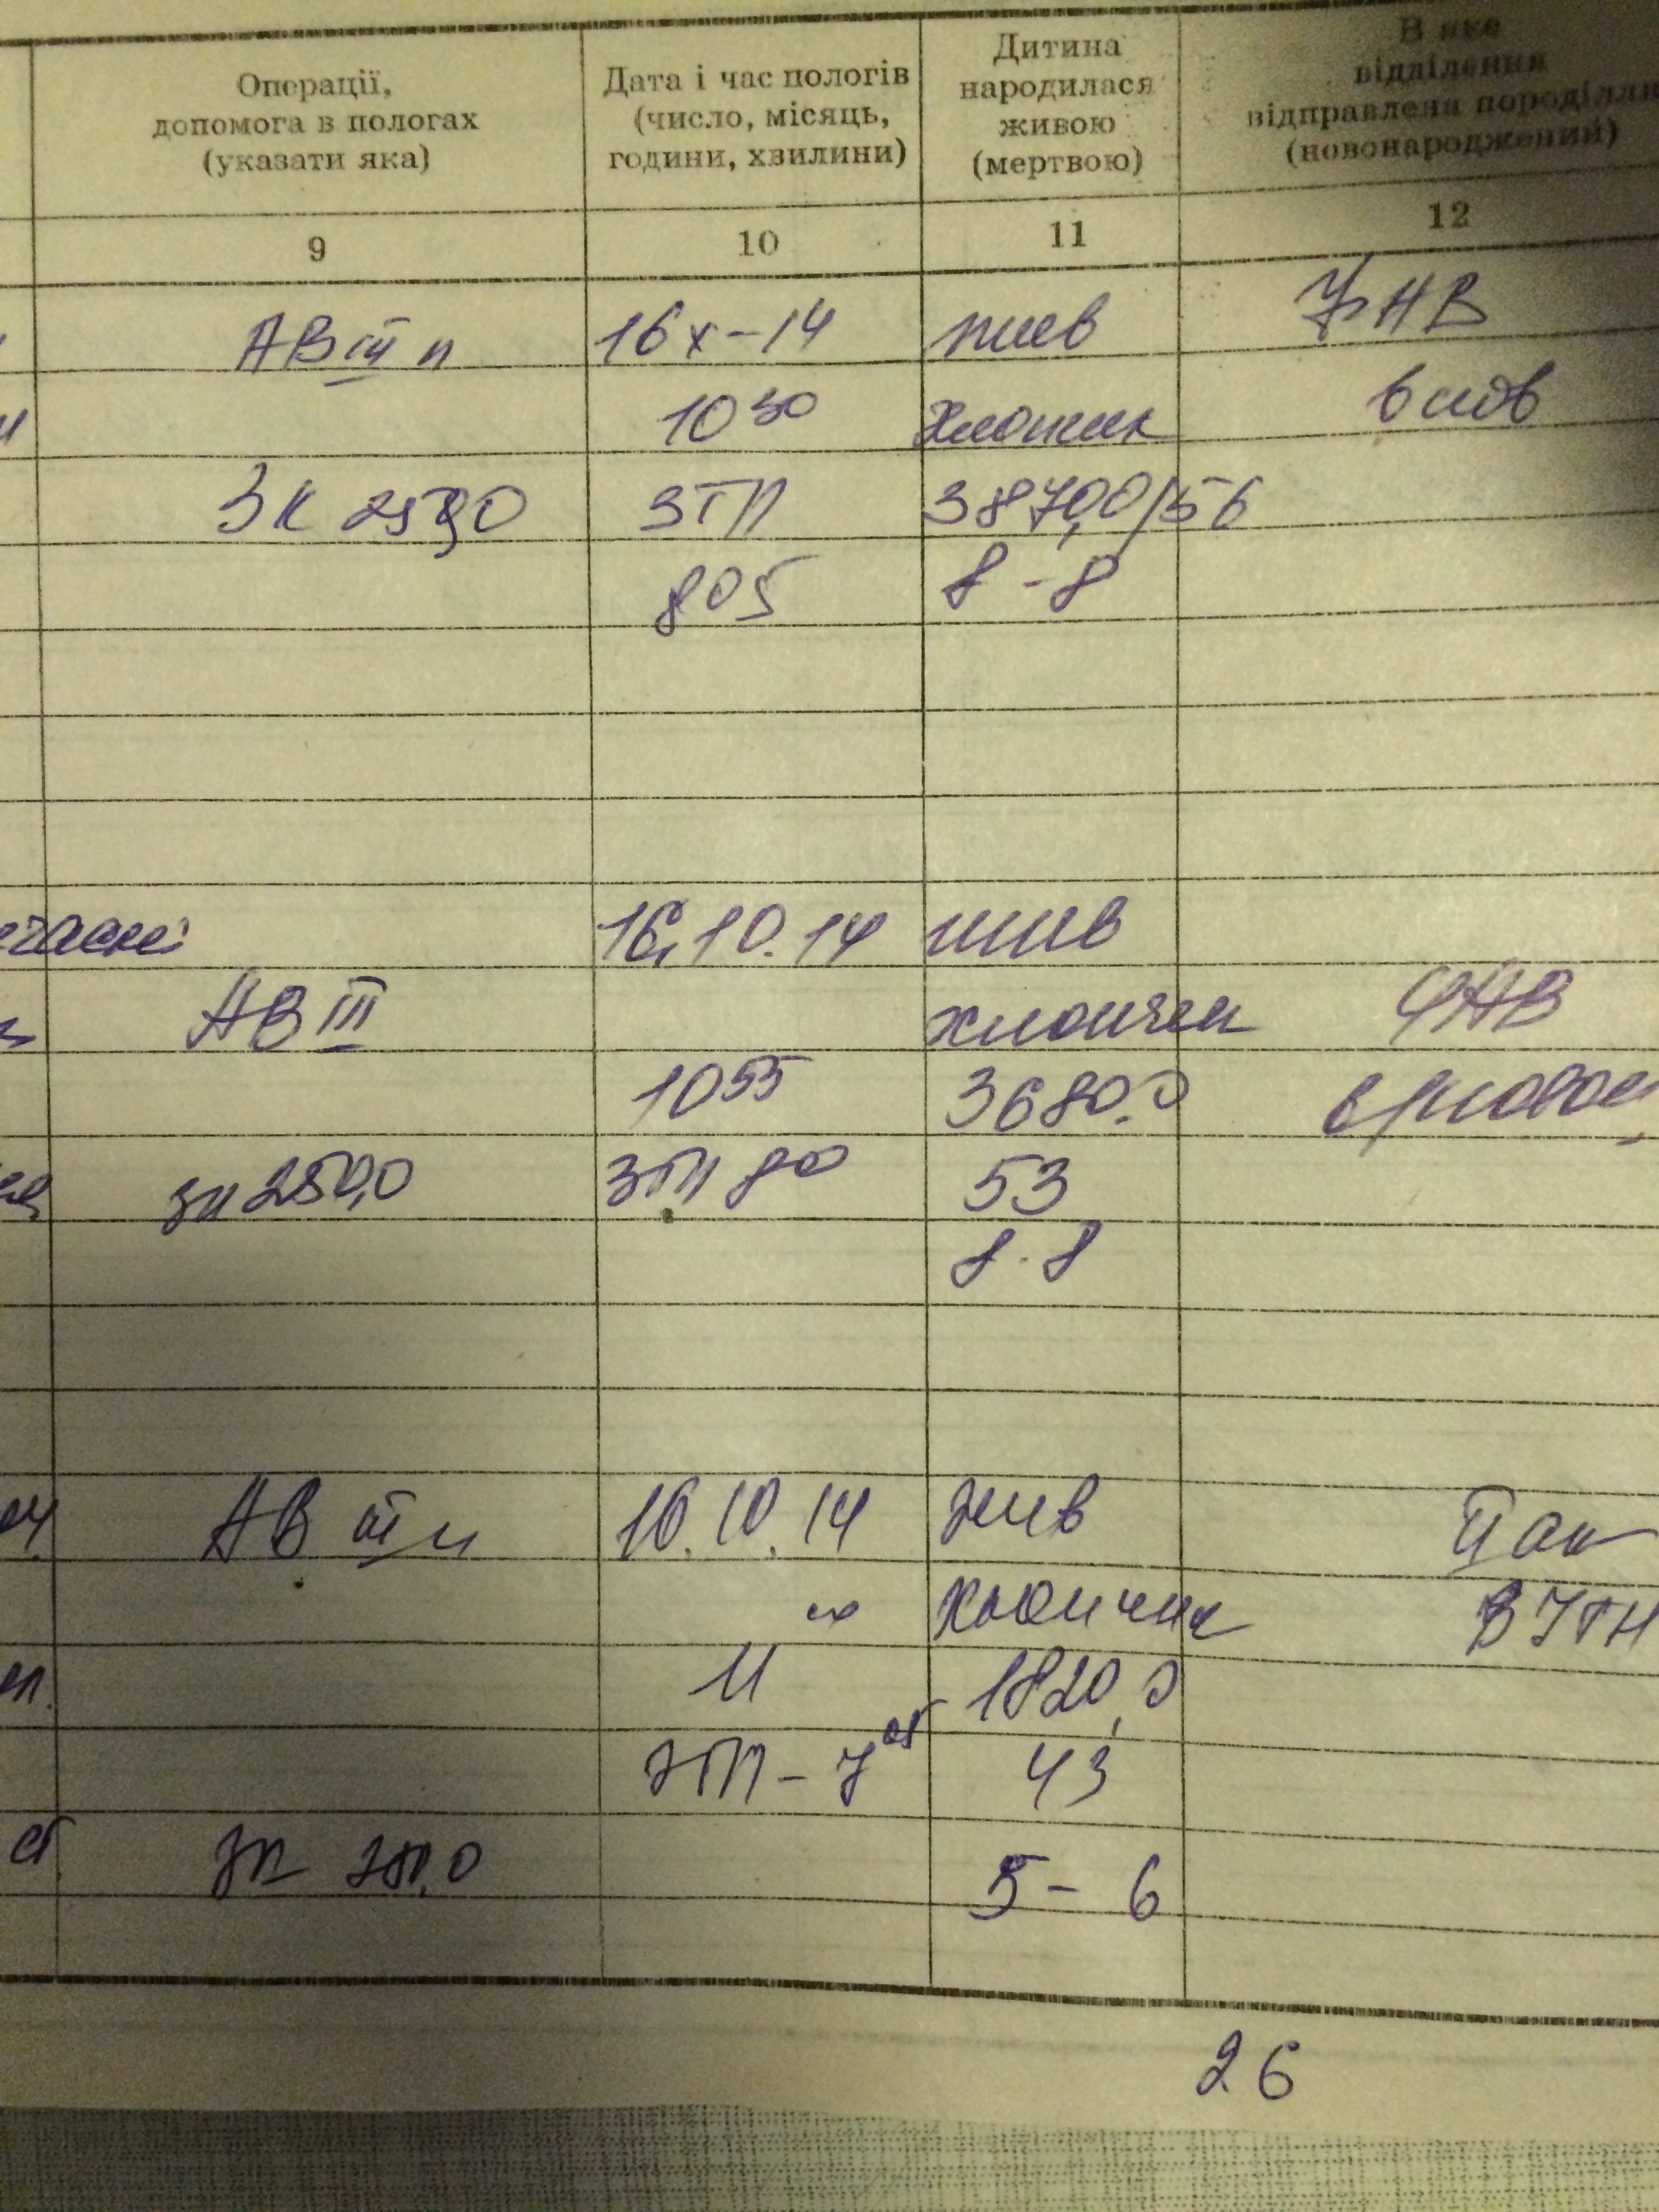 Операції,
допомога в пологах
(указати яка)
Дата і час пологів
(число, місяць,
години, хвилини)
Дитина
народилася
живою
(мертвою)
В яке
відділення
відправлена породілля
(новонароджений)
9 10 11 12
АВ III п 16 х-14 жив
10 30 хлопчик
ЗК ЗТП 3870,0/56
8 05 8-8
16.10.14 жив
АВ III хлопчик
10 55 3680,0
зк 250,0 ЗТП 8 00 53
8.8
АВ III п 16.10.14 жив
хлопчик
11 1820,0
ЗТП - 7 05 43
5-6
26